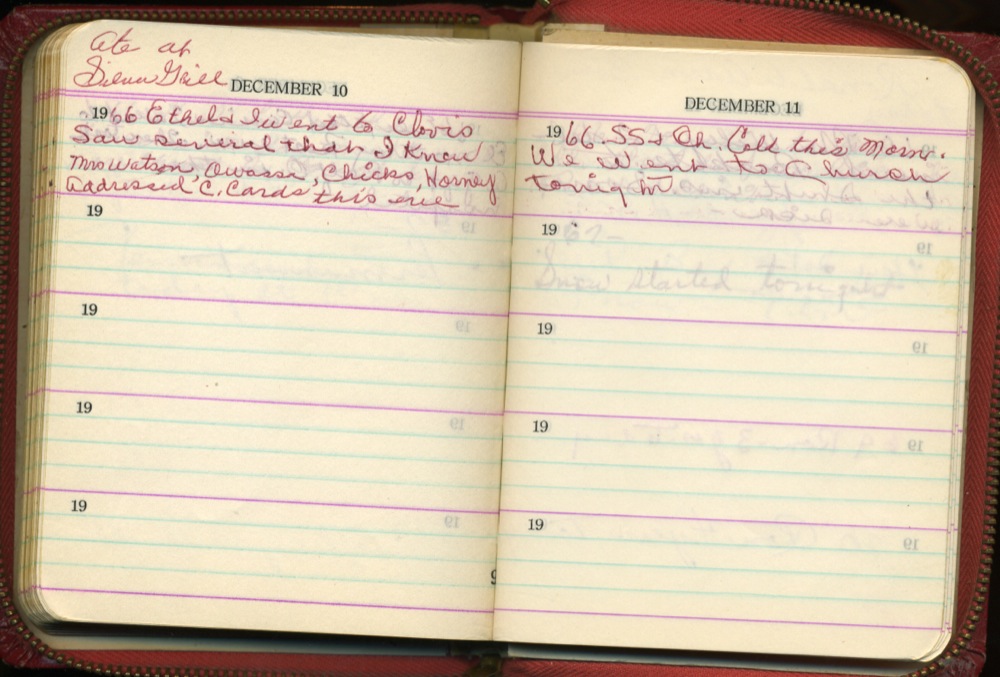 Ate at
Grill
DECEMBER 10
1966 Ethel & I went to Clovis
Saw several that I knew
Mrs Watson, Owassa, Chicks, Horney
addressed C. Cards this eve
19
19
19
19
DECEMBER 11
1966. SS & Ch. Cold this morn.
We went to Church
tonight
19 67-
Snow started tonight
19
19
19